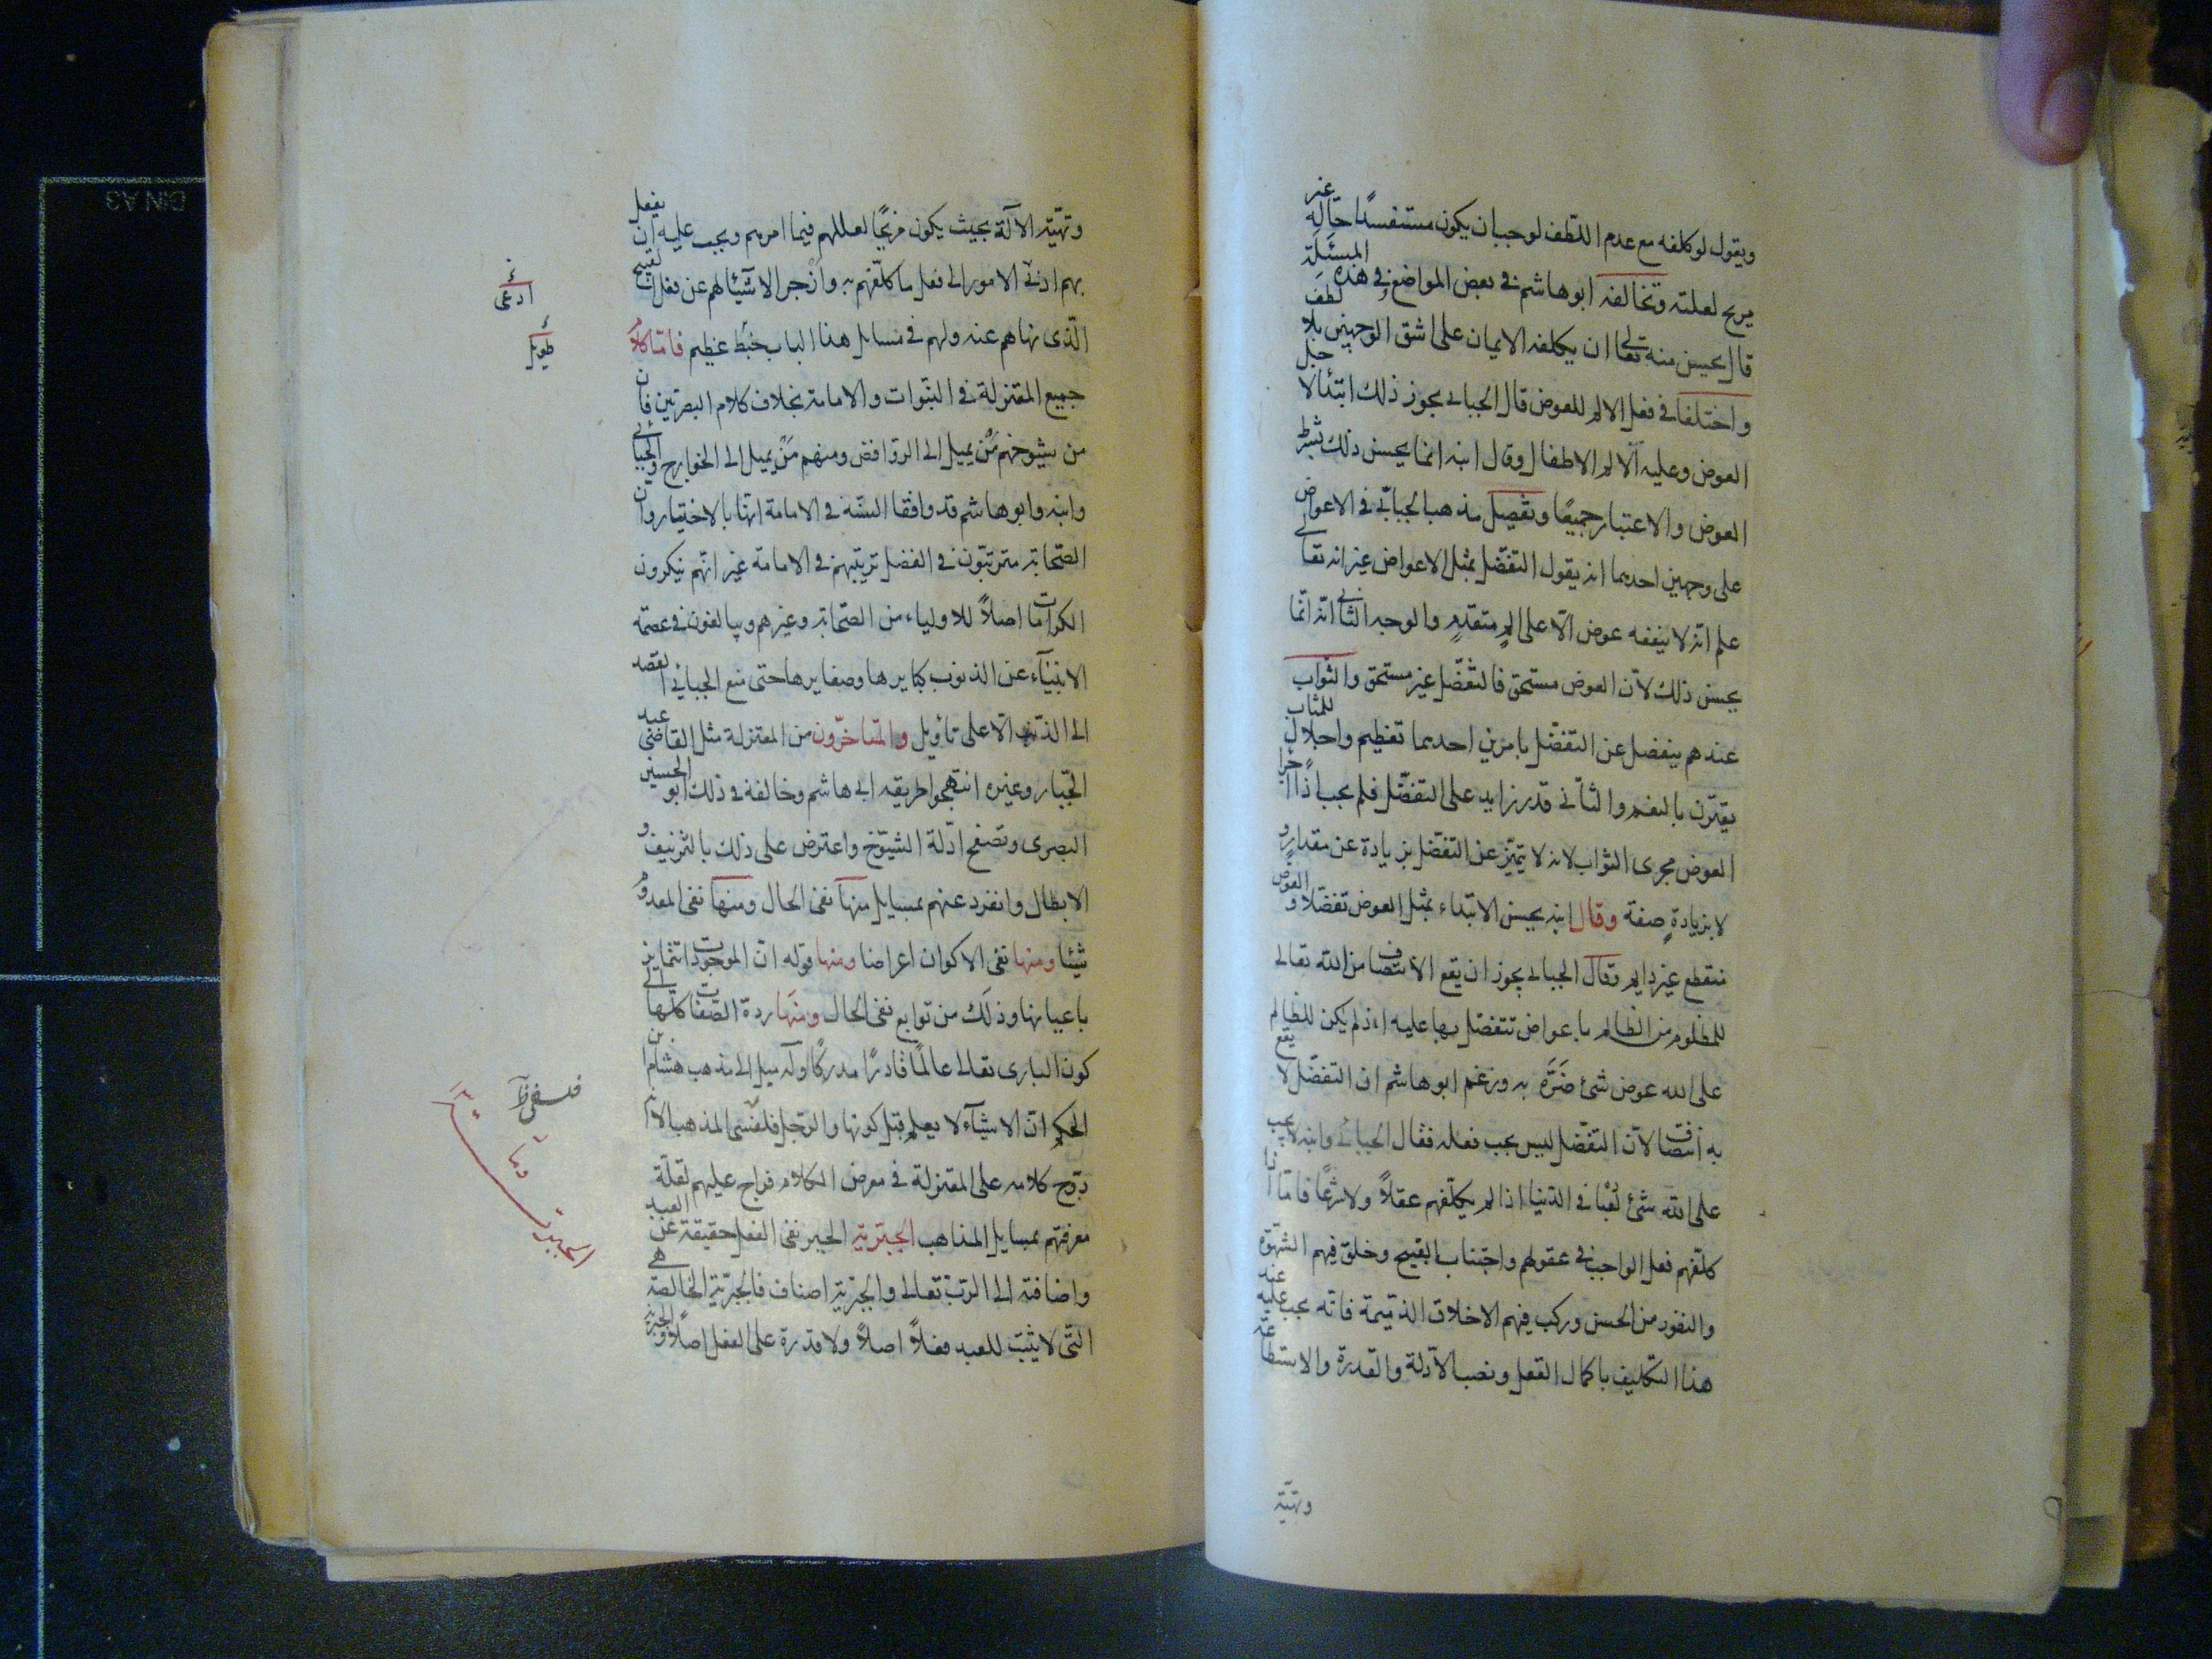 ويقول لو كلفه مع عدم اللطف لوجب ان يكون مستفسدًا حاله غير
مريح لعلته وتخالفه ابو هاشم فى بعض المواضع فى هذه المسئلة
قال يحسن منه تعالى ان يكلفه الايمان على اشق الوجهين بلا لطف
واختلفا فى فعل الالم للعوض قال الجبائى يجوز ذلك ابتدا لاجل
العوض وعليه الالم الاطفال وقال ابنه انما يحسن ذلك بشرط
العوض والاعتبار جميعًا وتفصيل مذهب الجبائى فى الاعواض
على وجهين احدهما انه يقول التفضل بمثل الاعواض غير انه تعالى
علم انه لا ينفعه عوض الا على الم متقدم والوجه الثانى انه انما
يحسن ذلك لان العوض مستحق فالتفضل غير مستحق والثواب
عندهم ينفصل عن التفضل بامرين احدهما تعظيم واجلال للمثاب
يقترن بالنعم والثانى قدر زايد على التفضل فلم يجب اذًا اجرا
العوض مجرى الثواب لانه لا يتميز عن التفضل بزيادة عن مقدار و
لا بزيادة صفة وقال ابنه يحسن الابتداء بمثل العوض تفضلا والعوض
منقطع غير دايم وقال الجبائى يجوز ان يقع الانتصاف من الله تعالى
للمظلوم من الظالم باعواض تتفضل بها عليه اذ لم يكن للظالم
على الله عوض شئ ضرّه به وزعم ابو هاشم ان التفضل لا يقع
به انتصاف لان التفضل ليس يجب فعله فقال الجبائى وابنه لا يجب
على الله شئ لعبا فى الدنيا اذا لم يكلفهم عقلاً ولا شرعًا فاما اذا
كلفهم فعل الواجب فى عقولهم واجتناب القبيح وخلق فيهم الشهوة
والنفور من الحسن وركب فيهم الاخلاق الذميمة فانه يجب عليه عند
هذا التكليف باكمال العقل ونصب الادلة والقدرة والاستطاعة
وتهيّة
وتهيّة الآلة بحيث يكون مزيحًا لعللهم فيما امرهم ويجب عليه ان يفعل
بهم ادنى الامور الى فعل ما كلفهم به وازجر الاشيئا لهم عن فعل القبيح
الذى نهاهم عنه ولهم فى مسايل هذا الباب خبط عظيم فاما كلام
جميع المعتزلة فى النبوات والامامة بخلاف كلام البصريين فان
من شيوخهم مَن يميل الى الروافض ومنهم مَن يميل الى الخوارج والجبائى
وابنه وابو هاشم قد وافقا السنه فى الامامة انها بالاختيار وان
الصحابة مترتبون فى الفضل ترتيبهم فى الامامة غير انهم ينكرون
الكرامات اصلاً للاولياء من الصحابة وغيرهم ويبالغون فى عصمة
الانبيآء عن الذنوب كبايرها وصغايرها حتى منع الجبائى القصد
الى الذنب الا على تأويل والمتاخرون من المعتزلة مثل القاضى عبد
الجبار وغيره انتهجوا طريقة ابى هاشم وخالفة فى ذلك ابو الحسين
البصرى وتصفح ادلة الشيوخ واعترض على ذلك بالتزييف و
الابطال وانفرد عنهم بمسايل منها نفى الحال ومنها نفى المعدوم
شيئا ومنها نفى الاكوان اعراضا ومنها قوله ان الموجودات تتمايز
باعيانها وذلك من توابع نفى الحال ومنها ردّه الصفات كلها الى
كون البارى تعالى عالمًا قادرًا مدركًا وله ميل الى مذهب هشام بن
الحكم ان الاشيآء لا يعلم قبل كونها والرجل فلفسى المذهب الا انه
روج كلامه على المعتزلة فى معرض الكلام فراج عليهم لقلة
معرفتهم بمسايل المذاهب الجبرية الجبر نفى الفعل حقيقة عن العبد
واضافته الى الرب تعالى والجبرية اصناف فالجبرية الخالصة هى
التى لا يثبت للعبد فعلاً اصلاً ولا قدرة على الفعل اصلاً والجبرية
ادعى
طويل
فلسفى
الجبرية